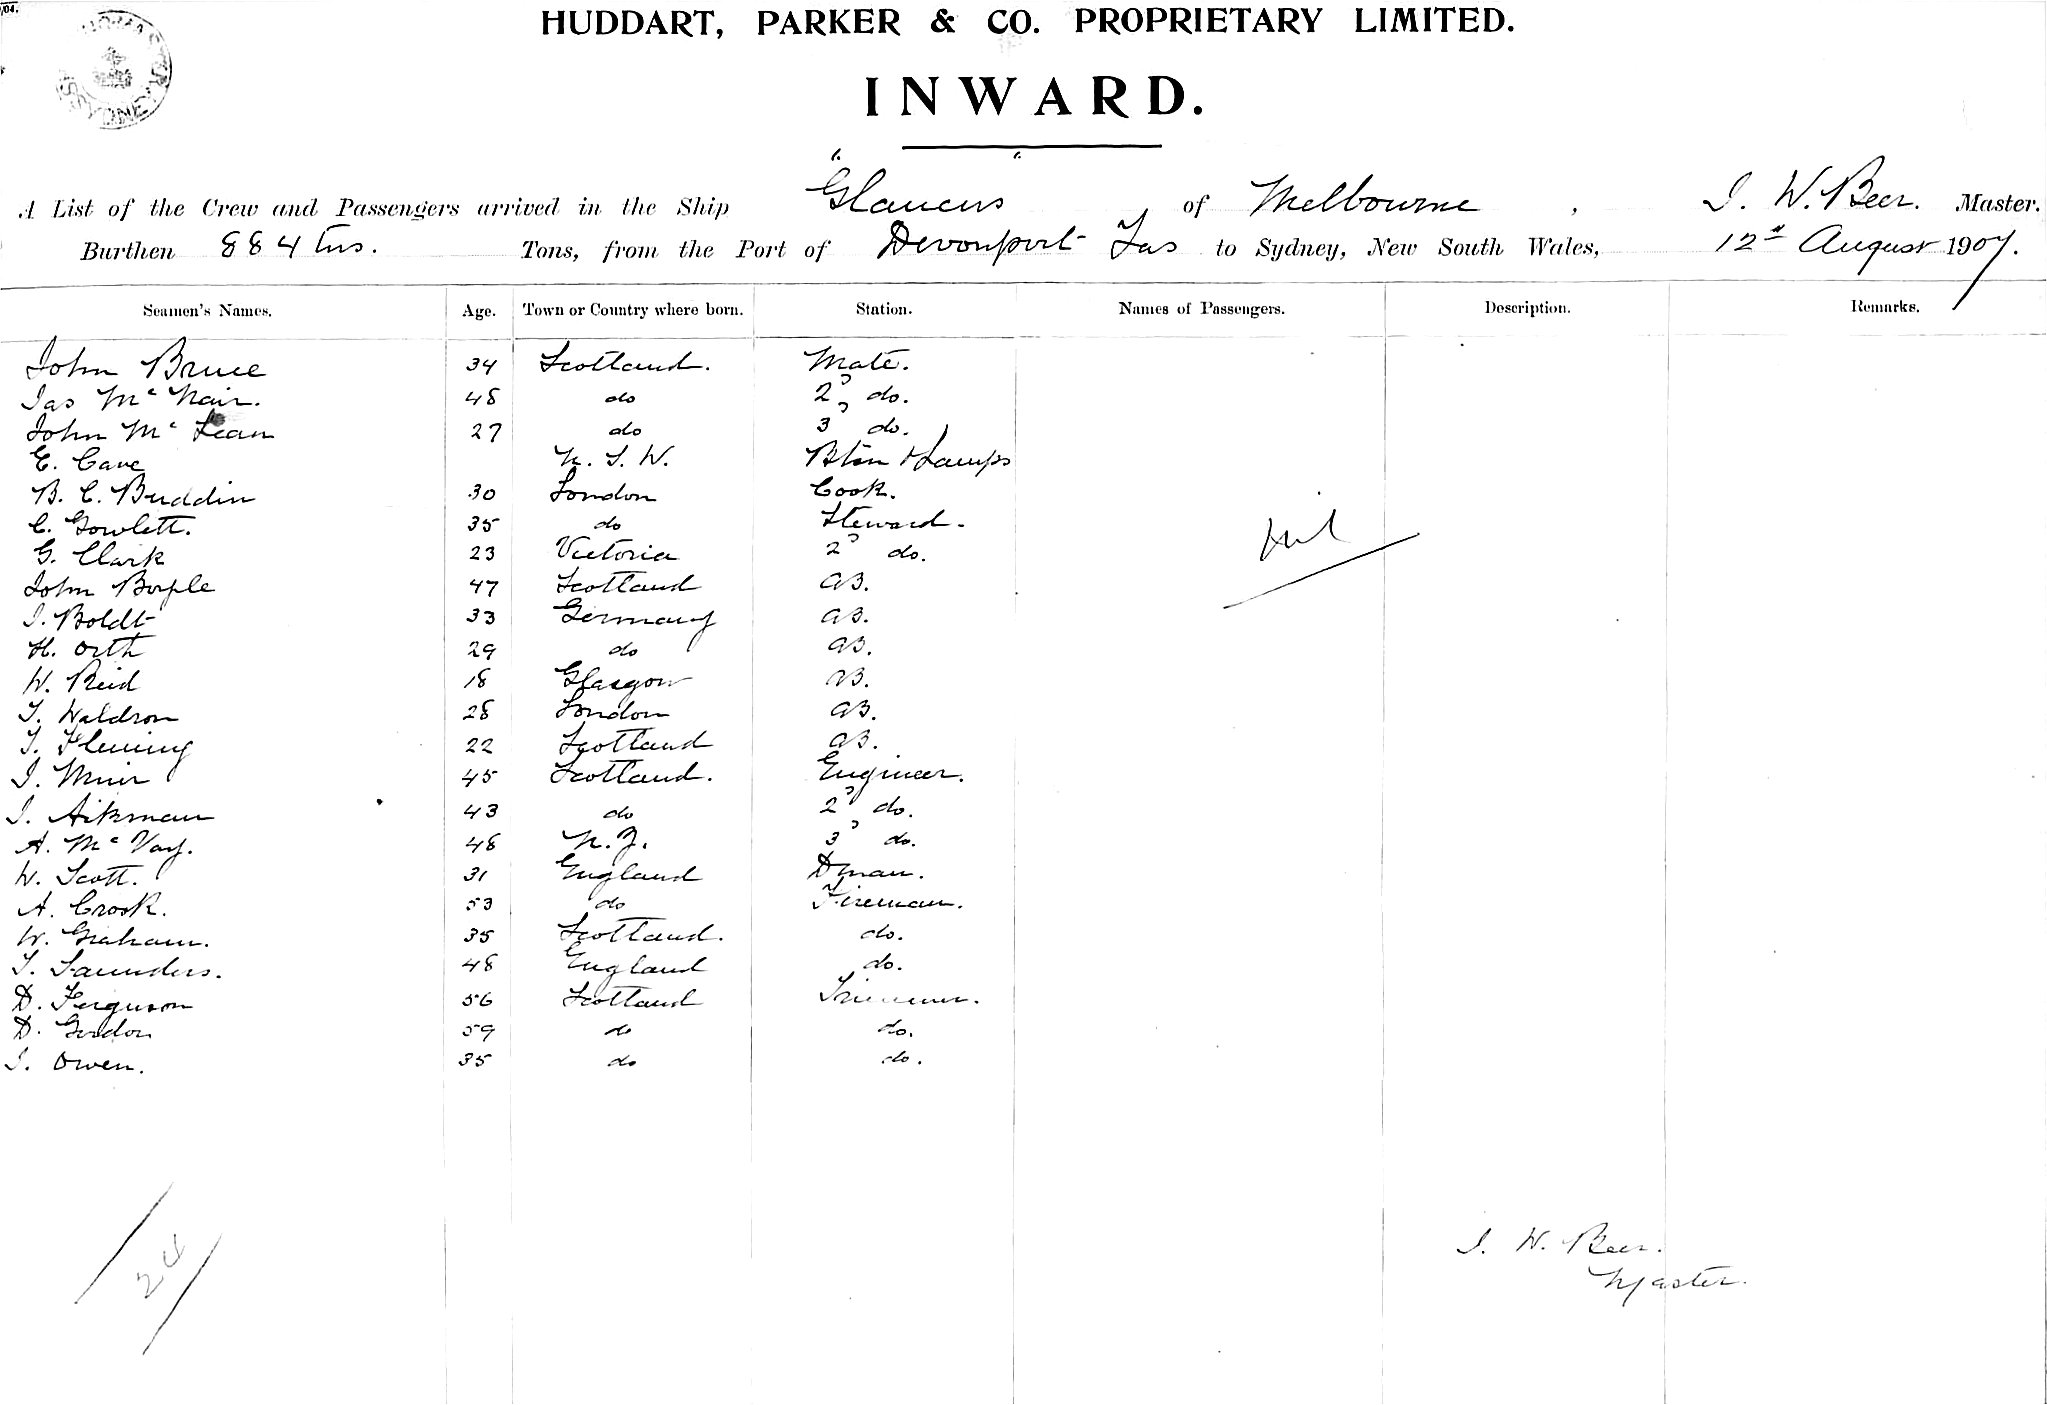 HUDDART, PARKER & CO. PROPRIETARY LIMITED.
INWARD.
A List of the Crew and Passengers arrived in the Ship "Glaucus" of Melbourne, J. W. Beer. Master.
Burthen 884 tns. Tons, from the Port of Devonport Tas to Sydney, New South Wales, 12th August 1907.
Seamen's Names. Age. Town or Country where born. Station. Names of Passengers. Description. Remarks.
John Bruce 34 Scotland. Mate.
Jas McNair. 48 do 2d do.
John McLean 27 do 3d do.
E. Cave N. S. W. Lamps
B. C. Buddin 30 London Cook.
C. Gowlett. 35 do Steward.
G. Clark 23 Victoria 2d do.
John 47 Scotland AB.
J. Boldt 33 Germany AB.
H. Orth 29 do AB.
W. Reid 18 Glasgow AB.
T. Waldron 28 London AB.
T. Fleming 22 Scotland AB.
J. Muir 45 Scotland. Engineer.
J. Aikman 43 do 2d do.
A. McVay. 48 N.Z. 3d do.
W. Scott. 31 England Dman.
A. Crook. 53 do Fireman.
W. Graham. 35 Scotland. do.
T. Saunders. 48 England do.
D. Ferguson 56 Scotland Trimmer.
D. Gordon 59 do do.
J. Owen. 35 do do.
Nil
24
J. W. Beer.
Master.